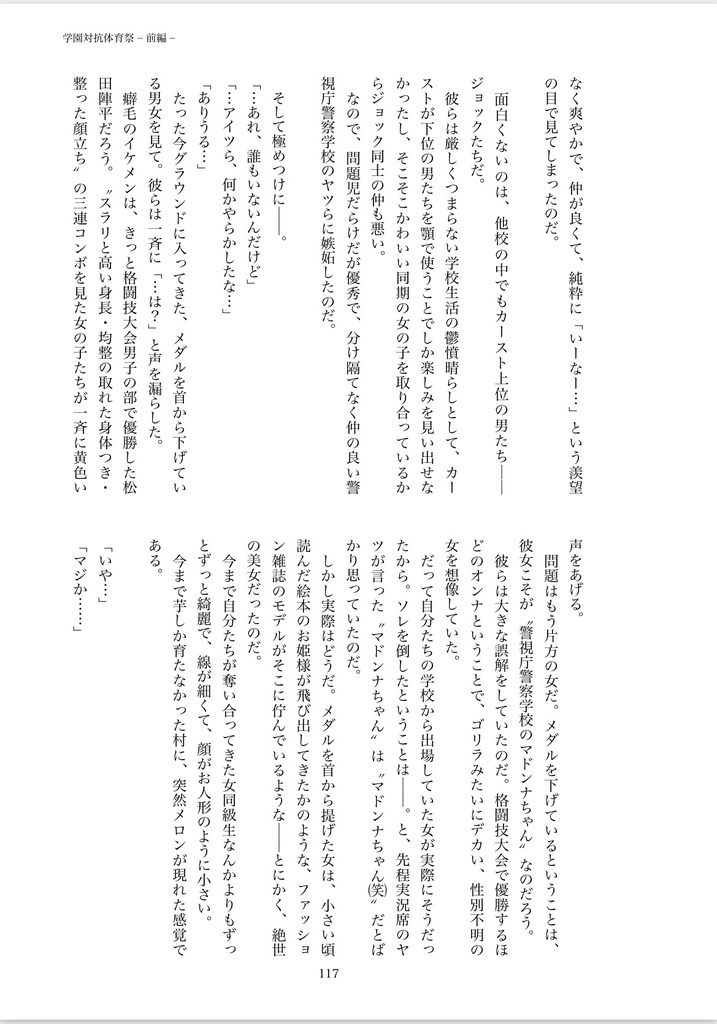 学園対抗体育祭 – 前編 –
なく爽やかで、仲が良くて、純粋に「いーなー…」という羨望
の目で見てしまったのだ。
面白くないのは、他校の中でもカースト上位の男たち――
ジョックたちだ。
彼らは厳しくつまらない学校生活の鬱憤晴らしとして、カー
ストが下位の男たちを顎で使うことでしか楽しみを見い出せな
かったし、そこそこかわいい同期の女の子を取り合っているか
らジョック同士の仲も悪い。
なので、問題児だらけだが優秀で、分け隔てなく仲の良い警
視庁警察学校のヤツらに嫉妬したのだ。
そして極めつけに――。
「…あれ、誰もいないんだけど」
「…アイツら、何かやらかしたな…」
「ありうる…」
たった今グラウンドに入ってきた、メダルを首から下げてい
る男女を見て。彼らは一斉に「…は？」と声を漏らした。
癖毛のイケメンは、きっと格闘技大会男子の部で優勝した松
田陣平だろう。〝スラリと高い身長・均整の取れた身体つき・
整った顔立ち〟の三連コンボを見た女の子たちが一斉に黄色い
声をあげる。
問題はもう片方の女だ。メダルを下げているということは、
彼女こそが〝警視庁警察学校のマドンナちゃん〟なのだろう。
彼らは大きな誤解をしていたのだ。格闘技大会で優勝するほ
どのオンナということで、ゴリラみたいにデカい、性別不明の
女を想像していた。
だって自分たちの学校から出場していた女が実際にそうだっ
たから。ソレを倒したということは――。と、先程実況席のヤ
ツが言った〝マドンナちゃん〟は〝マドンナちゃん(笑)〟だとば
かり思っていたのだ。
しかし実際はどうだ。メダルを首から提げた女は、小さい頃
読んだ絵本のお姫様が飛び出してきたかのような、ファッショ
ン雑誌のモデルがそこに佇んでいるような――とにかく、絶世
の美女だったのだ。
今まで自分たちが奪い合ってきた女同級生なんかよりもずっ
とずっと綺麗で、線が細くて、顔がお人形のように小さい。
今まで芋しか育たなかった村に、突然メロンが現れた感覚で
ある。
「いや…」
「マジか……」
117